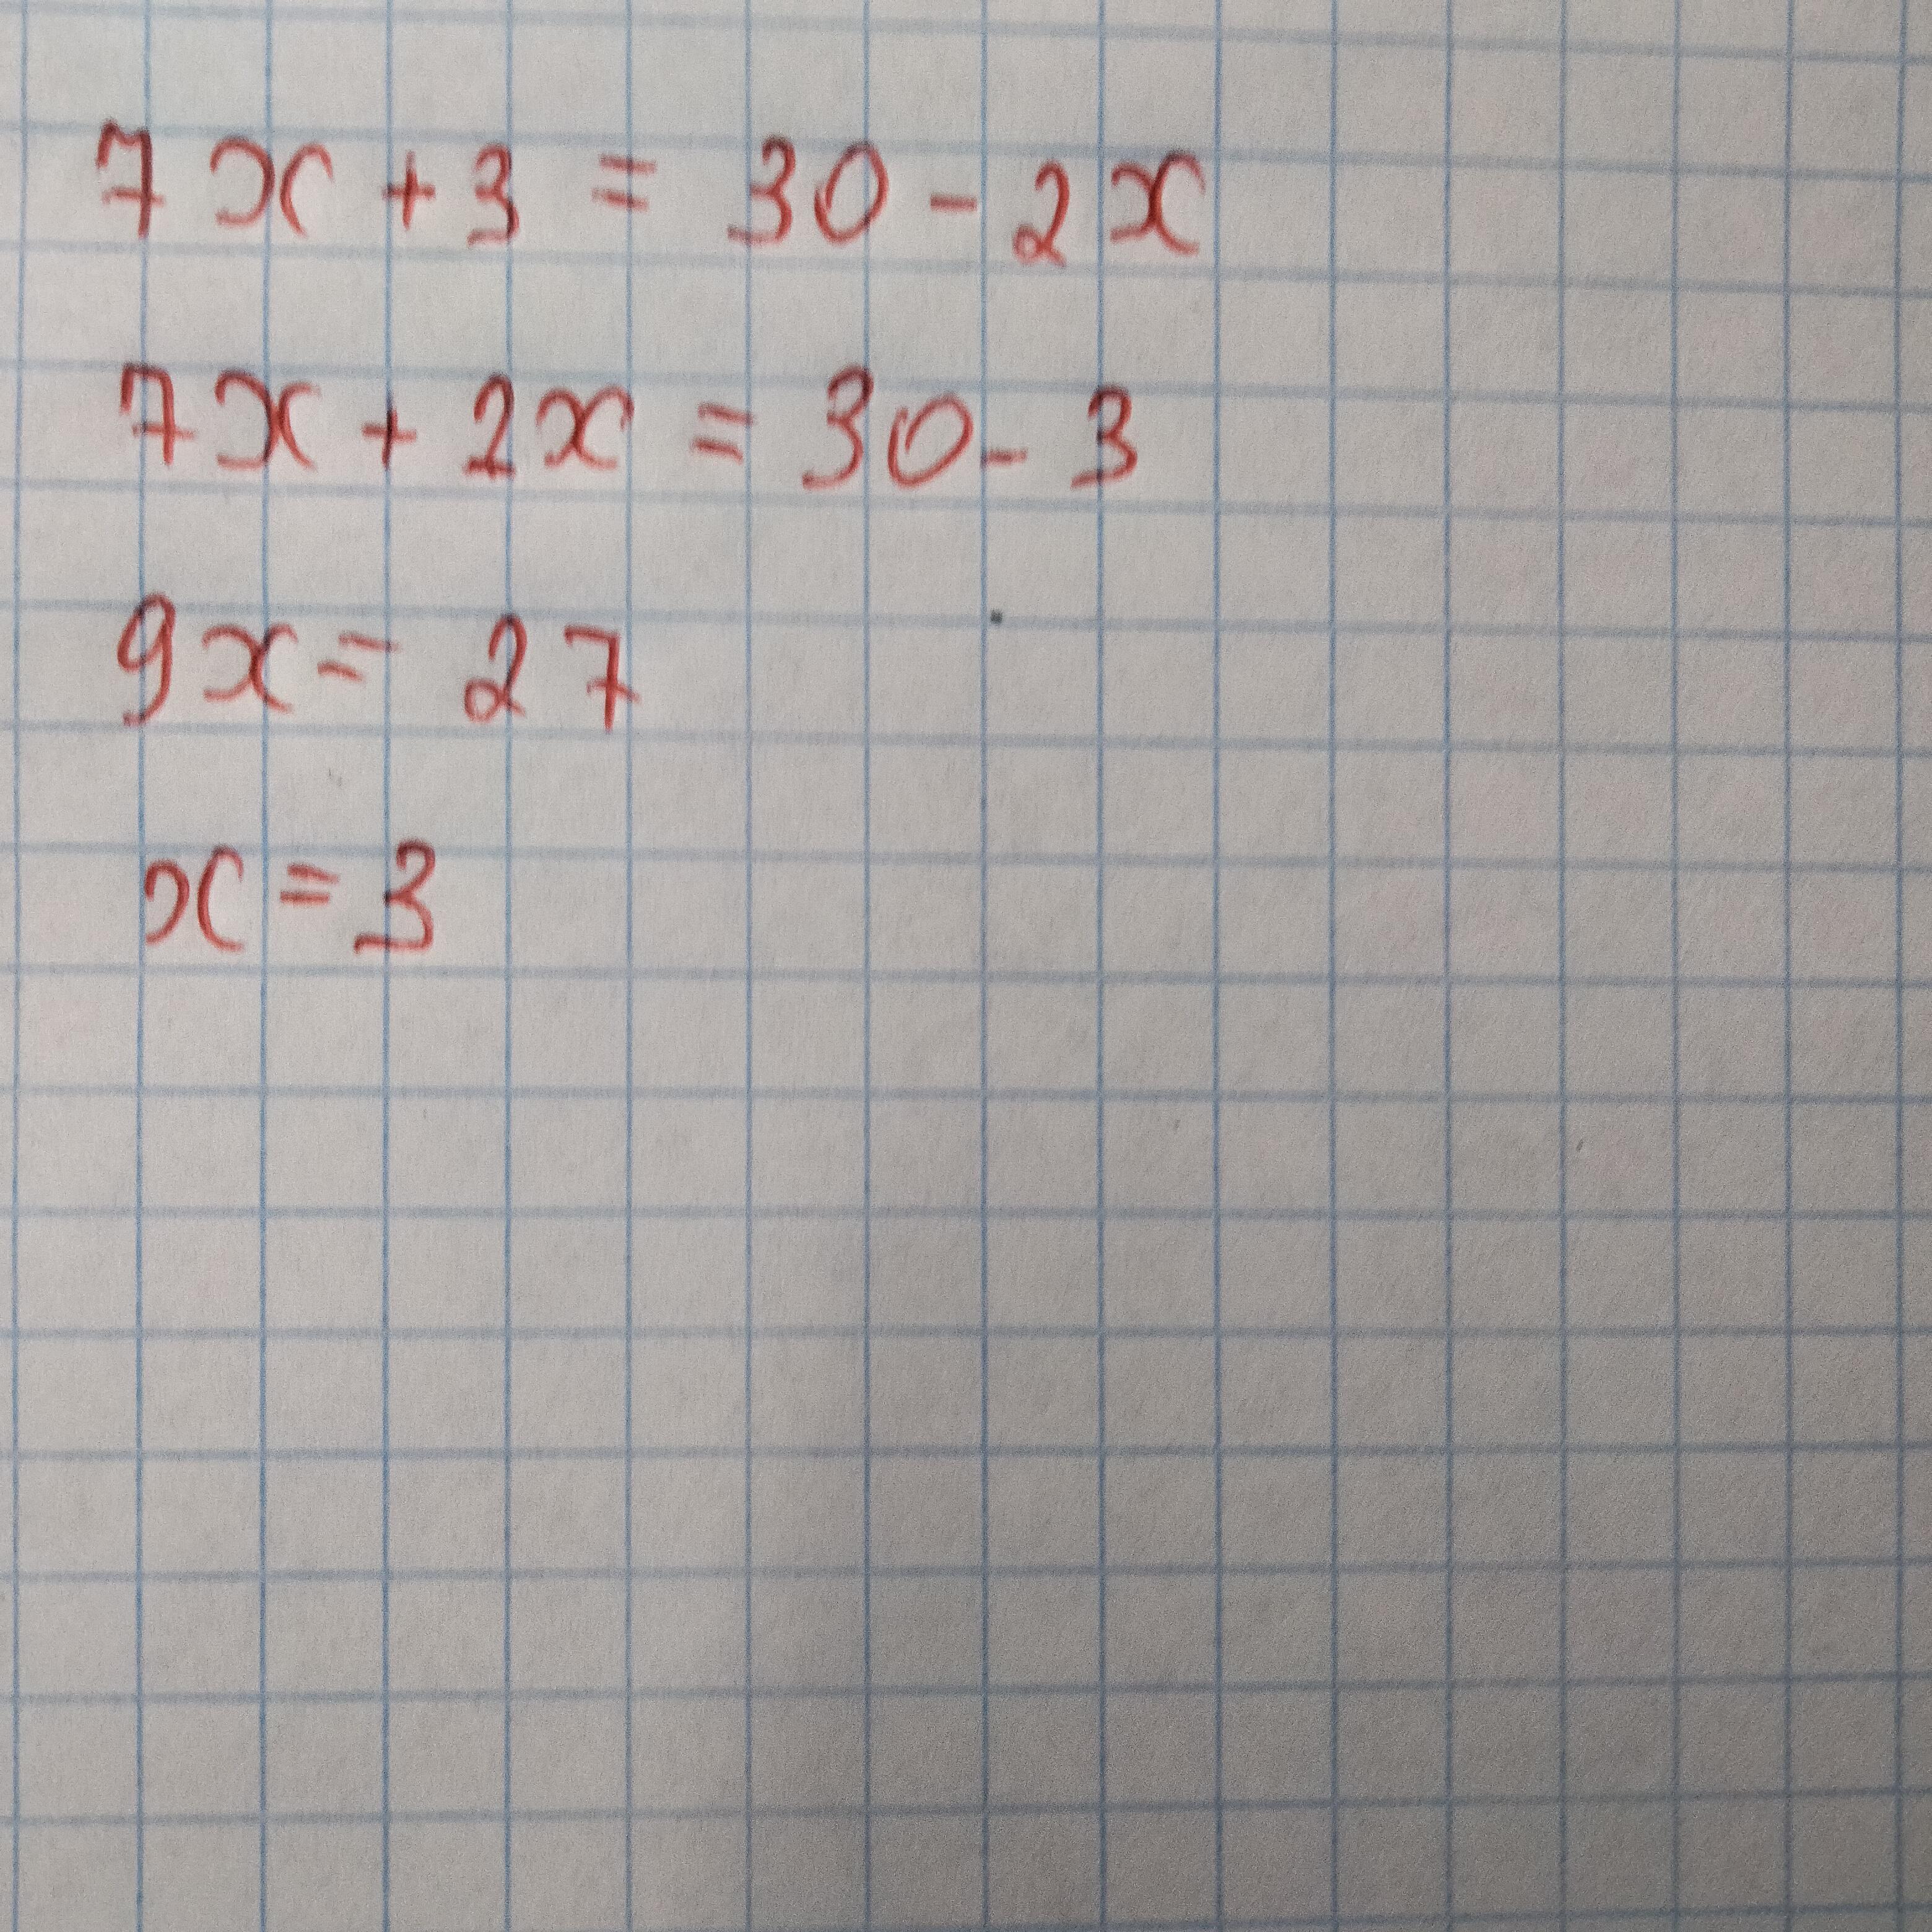 7x + 3 = 30 - 2x
7x + 2x = 30 - 3
9x = 27
x = 3